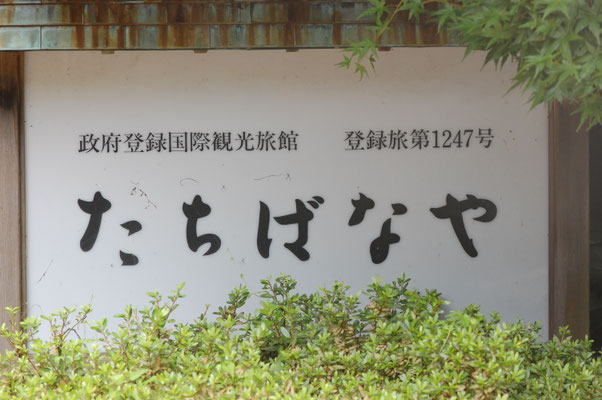 政府登録国際観光旅館　登録旅第1247号
たちばなや